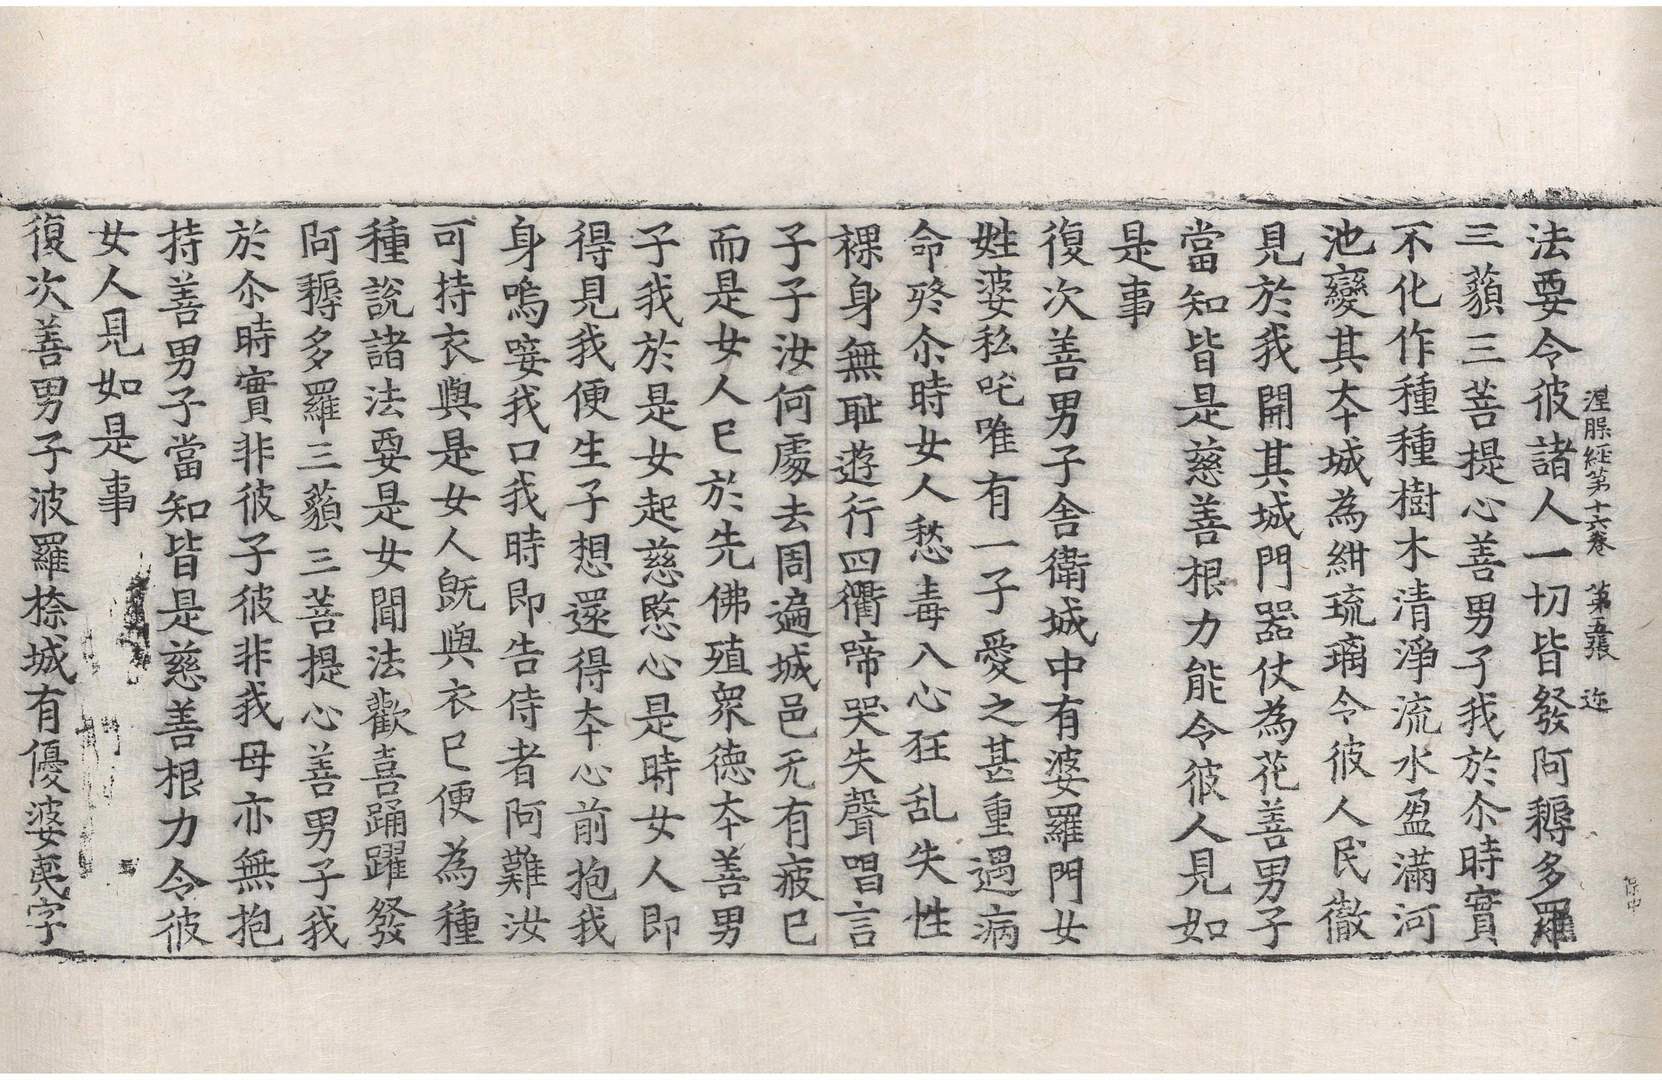 涅槃經第十六卷 第五張 迩
法要令彼諸人一切皆發阿耨多羅
三藐三菩提心善男子我於尒時實
不化作種種樹木清淨流水盈滿河
池變其夲城為紺琉璃令彼人民徹
見於我開其城門器仗為花善男子
當知皆是慈善根力能令彼人見如
是事
復次善男子舍衛城中有婆羅門女
姓婆私吒唯有一子愛之甚重遇病
命終尒時女人愁毒入心狂乱失性
裸身無耻遊行四衢啼哭失聲唱言
子子汝何處去周遍城邑无有疲已
而是女人已於先佛殖衆德夲善男
子我於是女起慈愍心是時女人即
得見我便生子想還得夲心前抱我
身嗚唼我口我時即告侍者阿難汝
可持衣與是女人旣與衣已便為種
種說諸法要是女聞法歡喜踊躍發
阿耨多羅三藐三菩提心善男子我
於尒時實非彼子彼非我母亦無抱
持善男子當知皆是慈善根力令彼
女人見如是事
復次善男子波羅㮈城有優婆夷字